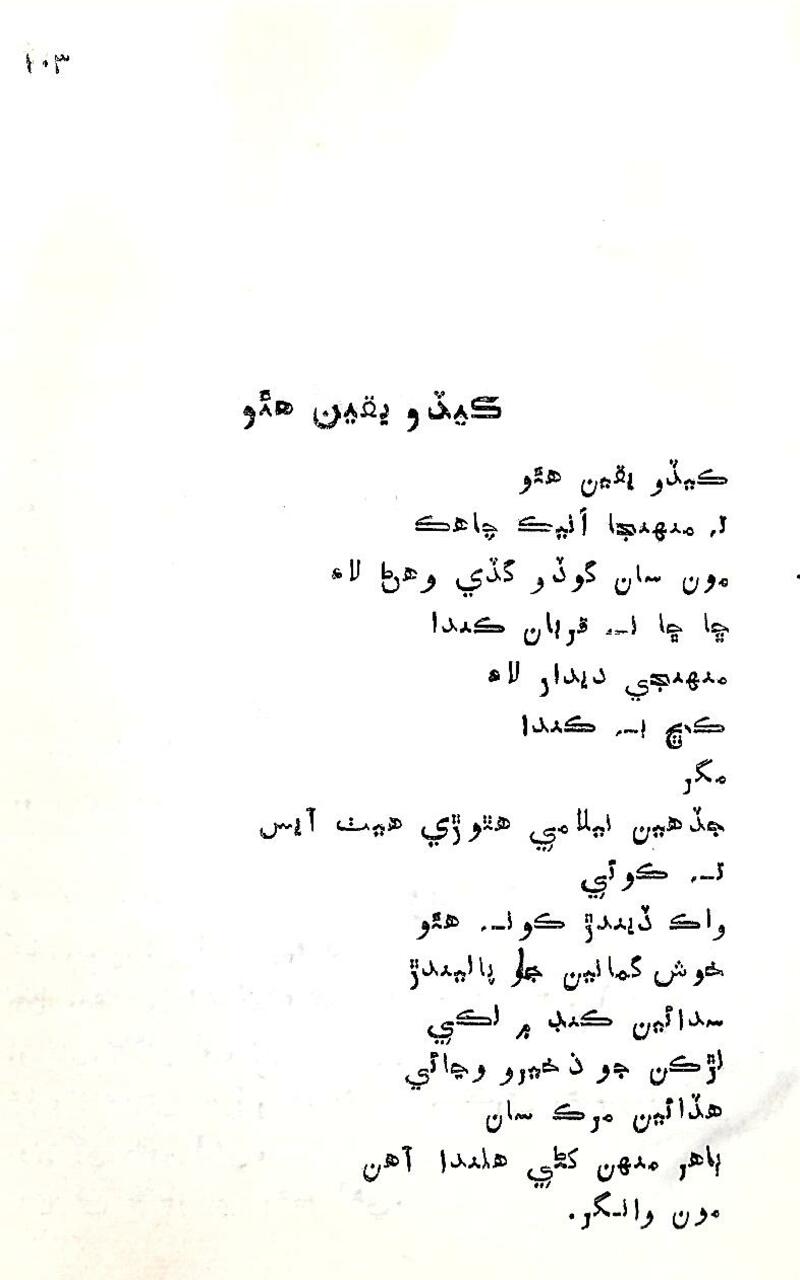 ١٠٣
ڪيڏو يقين هئو
ڪيڏو يقين هئو
ته منهنجا انيڪ چاهڪ
مون سان گوڏو گڏي وهڻ لاءِ
ڇا ڇا نه قربان ڪندا
منهنجي ديدار لاءِ
ڪڇ به ڪندا
مگر
جڏهين نيلامي هٿوڙي هيٺ آيس
ته ڪوئي
واڪ ڏيندڙ ڪونه هئو
خوش گمانين جو پاليندڙ
سدائين ڪنڊ ۾ لڪي
لڙڪن جو ذخيرو وڃائي
هڏائين مرڪ سان
ٻاهر منهن ڪڍي هلندا آهن
مون وانگر.